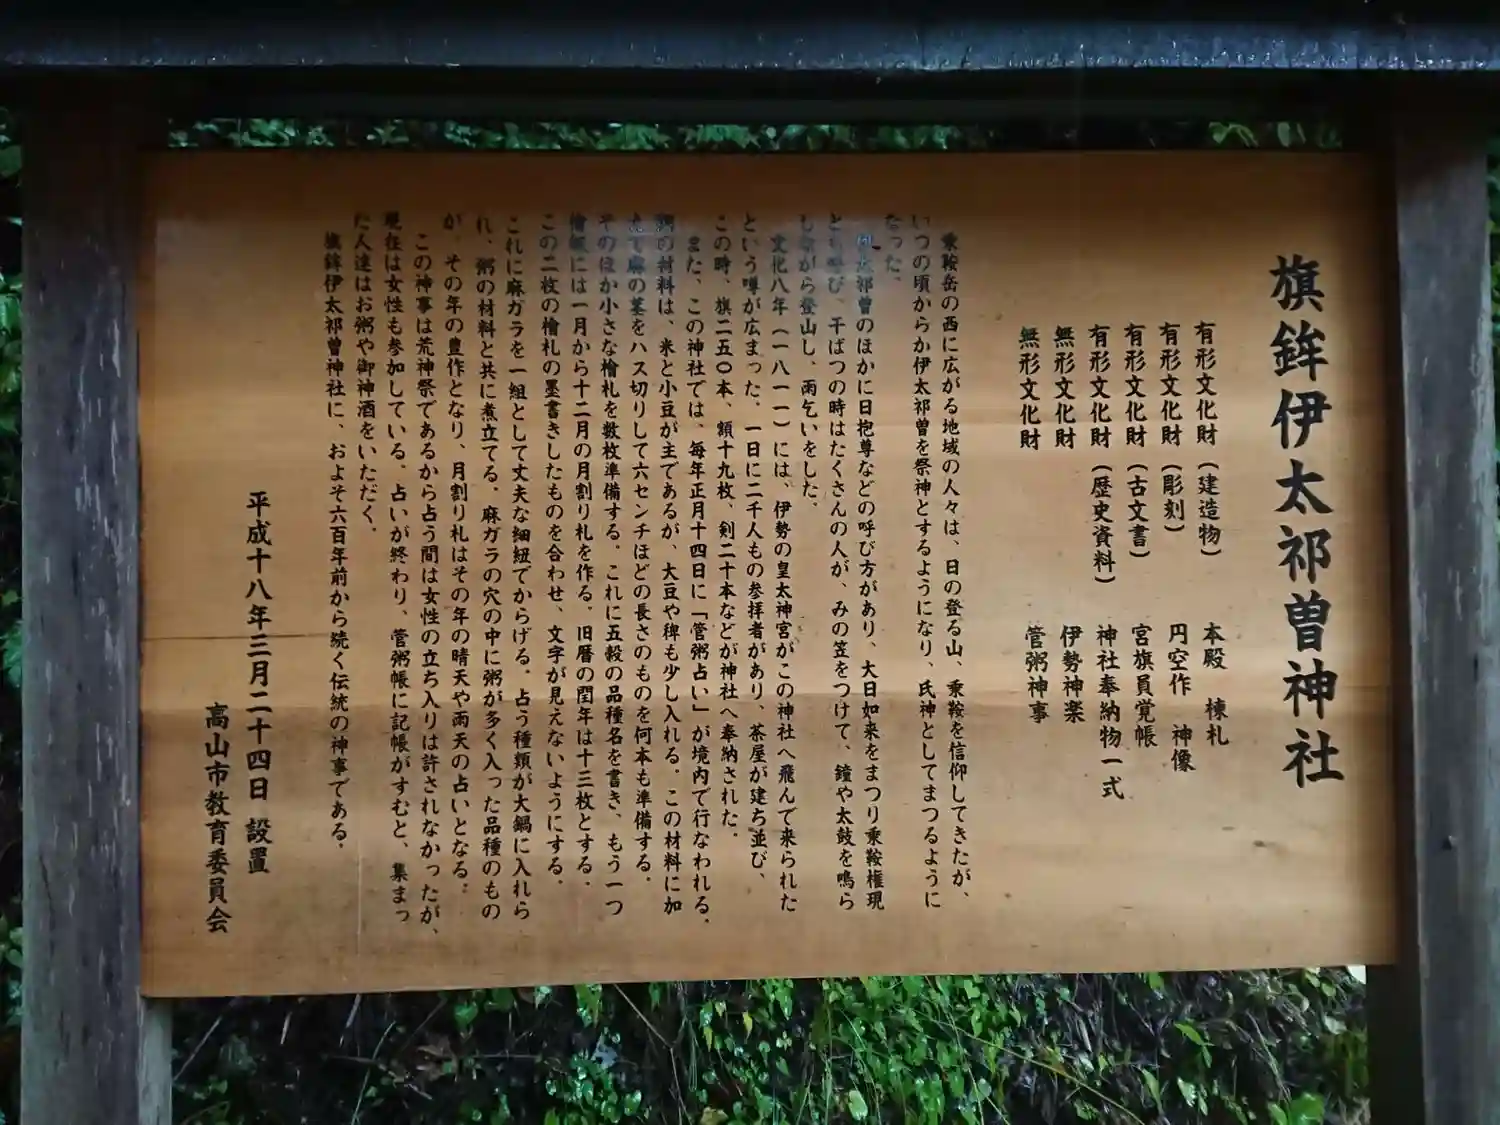 旗鉾伊太祁曽神社
有形文化財（建造物） 本殿 棟札
有形文化財（彫刻） 円空作 神像
有形文化財（古文書） 宮旗員覚帳
有形文化財（歴史資料） 神社奉納物一式
無形文化財 伊勢神楽
無形文化財 管粥神事
乗鞍岳の西に広がる地域の人々は、日の登る山、乗鞍を信仰してきたが、
いつの頃からか伊太祁曽を祭神とするようになり、氏神としてまつるように
なった。
伊太祁曽のほかに日抱尊などの呼び方があり、大日如来をまつり乗鞍権現
とも呼び、干ばつの時はたくさんの人が、みの笠をつけて、鐘や太鼓を鳴ら
しながら登山し、雨乞いをした。
文化八年（一八一一）には、伊勢の皇太神宮がこの神社へ飛んで来られた
という噂が広まった。一日に二千人もの参拝者があり、茶屋が建ち並び、
この時、旗二五〇本、額十九枚、剣二十本などが神社へ奉納された。
また、この神社では、毎年正月十四日に「管粥占い」が境内で行なわれる。
粥の材料は、米と小豆が主であるが、大豆や稗も少し入れる。この材料に加
えて麻の茎をハス切りして六センチほどの長さのものを何本も準備する。
そのほか小さな檜札を数枚準備する。これに五穀の品種名を書き、もう一つ
檜札には一月から十二月の月割り札を作る。旧暦の閏年は十三枚とする。
この二枚の檜札の墨書きしたものを合わせ、文字が見えないようにする。
これに麻ガラを一組として丈夫な細紐でからげる。占う種類が大鍋に入れら
れ、粥の材料と共に煮立てる。麻ガラの穴の中に粥が多く入った品種のもの
が、その年の豊作となり、月割り札はその年の晴天や雨天の占いとなる。
この神事は荒神祭であるから占う間は女性の立ち入りは許されなかったが、
現在は女性も参加している。占いが終わり、管粥帳に記帳がすむと、集まっ
た人達はお粥や御神酒をいただく。
旗鉾伊太祁曽神社に、およそ六百年前から続く伝統の神事である。
平成十八年三月二十四日 設置
高山市教育委員会